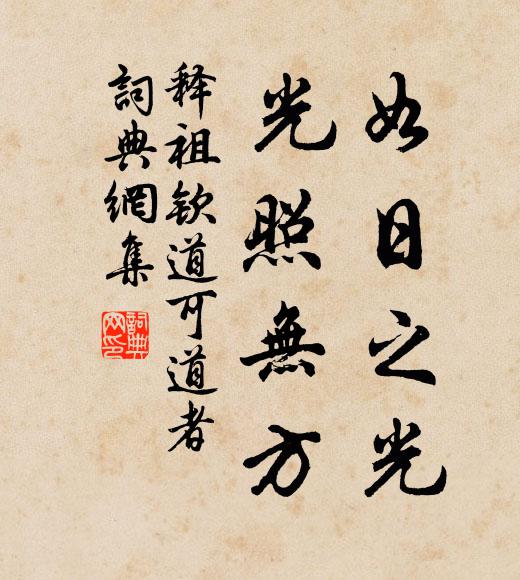 如日之光
光照無方
释祖欽道可道者
詞典網集
詞典網印